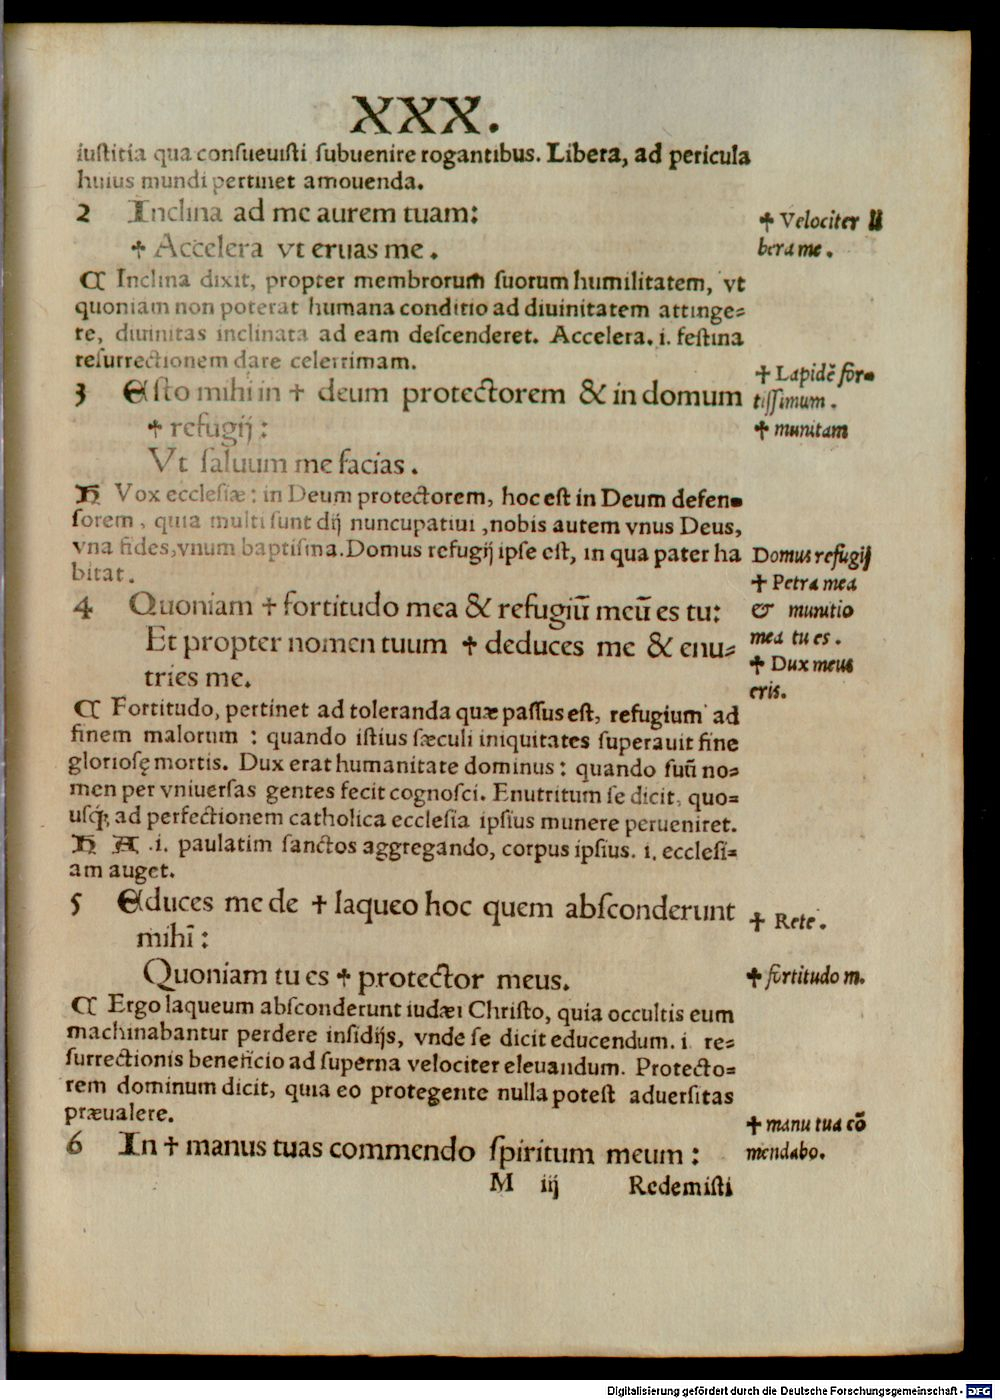 XXX.
iustitia qua consueuisti subuenire rogantibus. Libera, ad pericula
huius mundi pertinet amouenda.
2 Inclina ad me aurem tuam:
✝ Accelera vt eruas me.
✝ Velociter li
bera me.
₵ Inclina dixit, propter membrorum suorum humilitatem, vt
quoniam non poterat humana conditio ad diuinitatem attinge-
re, diuinitas inclinata ad eam descenderet. Accelera. i. festina
resurrectionem dare celerrimam.
3 Esto mihi in ✝ deum protectorem & in domum
✝ refugij:
Vt saluum me facias.
✝ Lapidē for-
tissimum.
✝ munitam
H Vox ecclesiæ: in Deum protectorem, hoc est in Deum defen-
sorem, quia multi sunt dij nuncupatiui, nobis autem vnus Deus,
vna fides, vnum baptisma. Domus refugij ipse est, in qua pater ha
bitat.
Domus refugij
4 Quoniam ✝ fortitudo mea & refugiū meū es tu:
Et propter nomen tuum ✝ deduces me & enu-
tries me.
✝ Petra mea
& munitio
mea tu es.
✝ Dux meus
eris.
₵ Fortitudo, pertinet ad toleranda quæ passus est, refugium ad
finem malorum: quando istius sæculi iniquitates superauit fine
gloriosę mortis. Dux erat humanitate dominus: quando suū no-
men per vniuersas gentes fecit cognosci. Enutritum se dicit, quo-
usq; ad perfectionem catholica ecclesia ipsius munere perueniret.
H A .i. paulatim sanctos aggregando, corpus ipsius. i. ecclesi-
am auget.
5 Educes me de ✝ laqueo hoc quem absconderunt
mihī:
Quoniam tu es ✝ protector meus.
✝ Rete.
✝ fortitudo m.
₵ Ergo laqueum absconderunt iudæi Christo, quia occultis eum
machinabantur perdere insidijs, vnde se dicit educendum. i re-
surrectionis beneficio ad superna velociter eleuandum. Protecto-
rem dominum dicit, quia eo protegente nulla potest aduersitas
præualere.
6 In ✝ manus tuas commendo spiritum meum:
✝ manu tua cō
mendabo.
M iij Redemisti
Digitalisierung gefördert durch die Deutsche Forschungsgemeinschaft - DFG